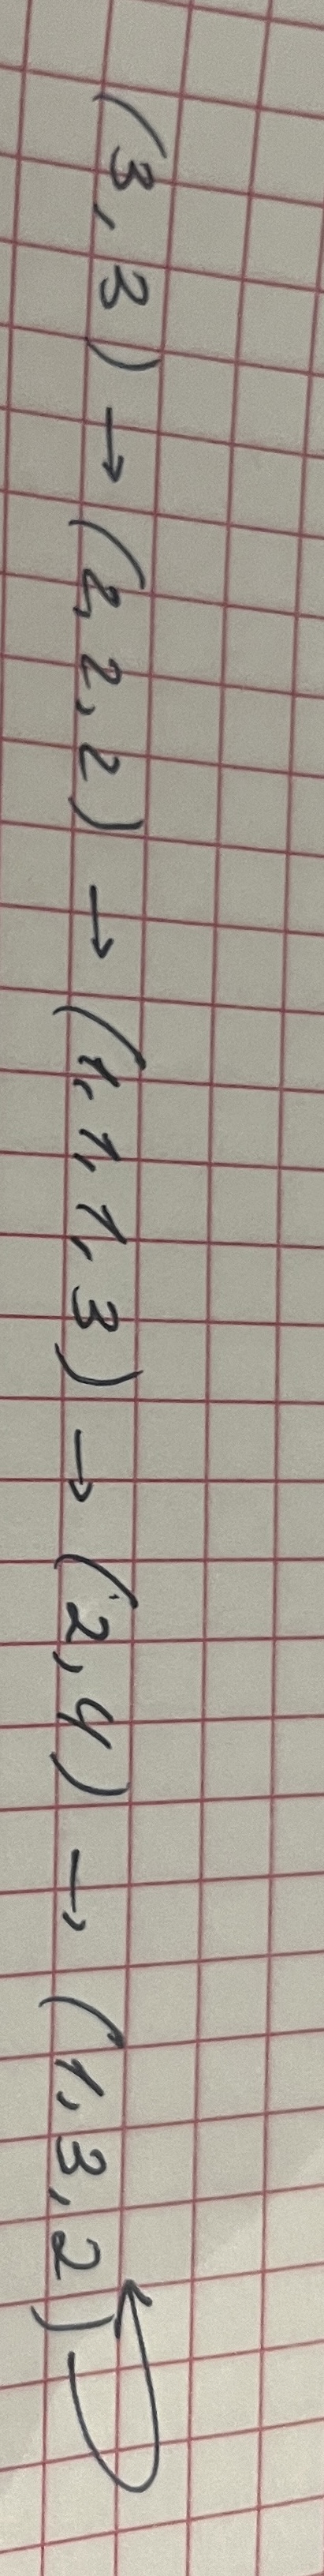 (3,3) → (2,2,2) → (1,1,1,3) → (2,4) → (1,3,2)